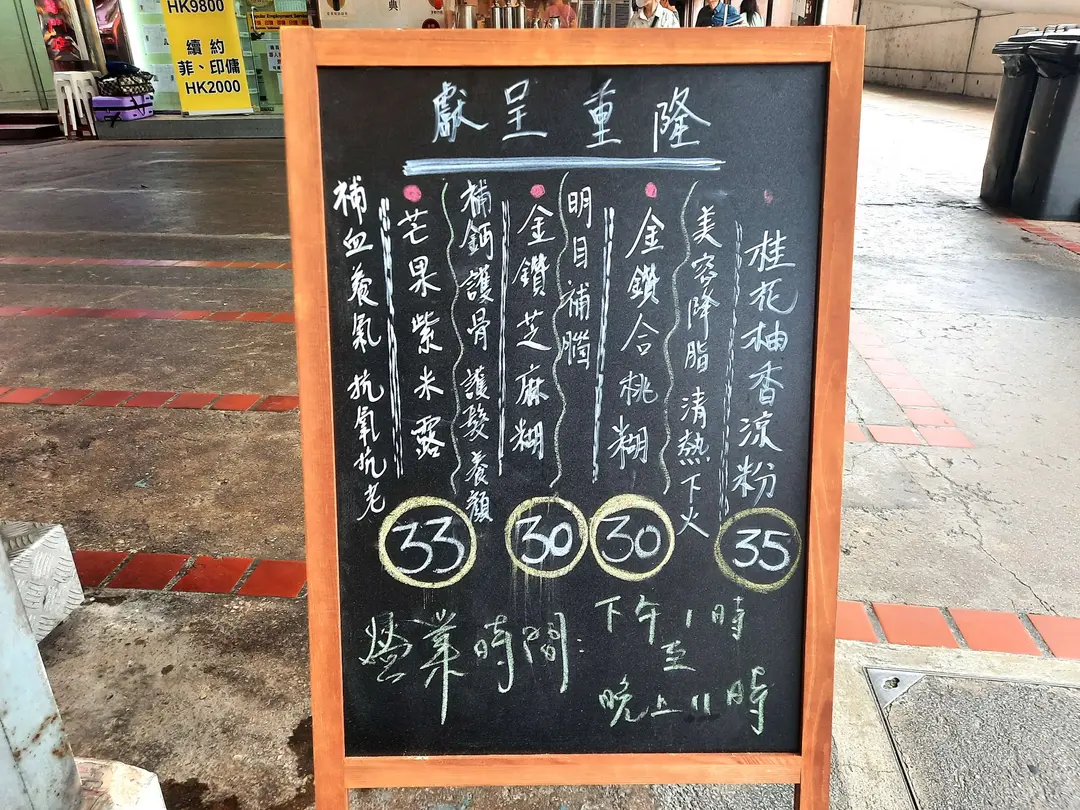 HK9800
續約
菲、印傭
HK2000
典
隆重呈獻
桂花柚香涼粉
35
美容降脂 清熱下火
金鑽合桃糊
30
明目補腦
金鑽芝麻糊
30
補鈣護骨 護髮 養顏
芒果紫米露
33
補血養氣 抗氧抗老
營業時間:
下午1時
至
晚上11時